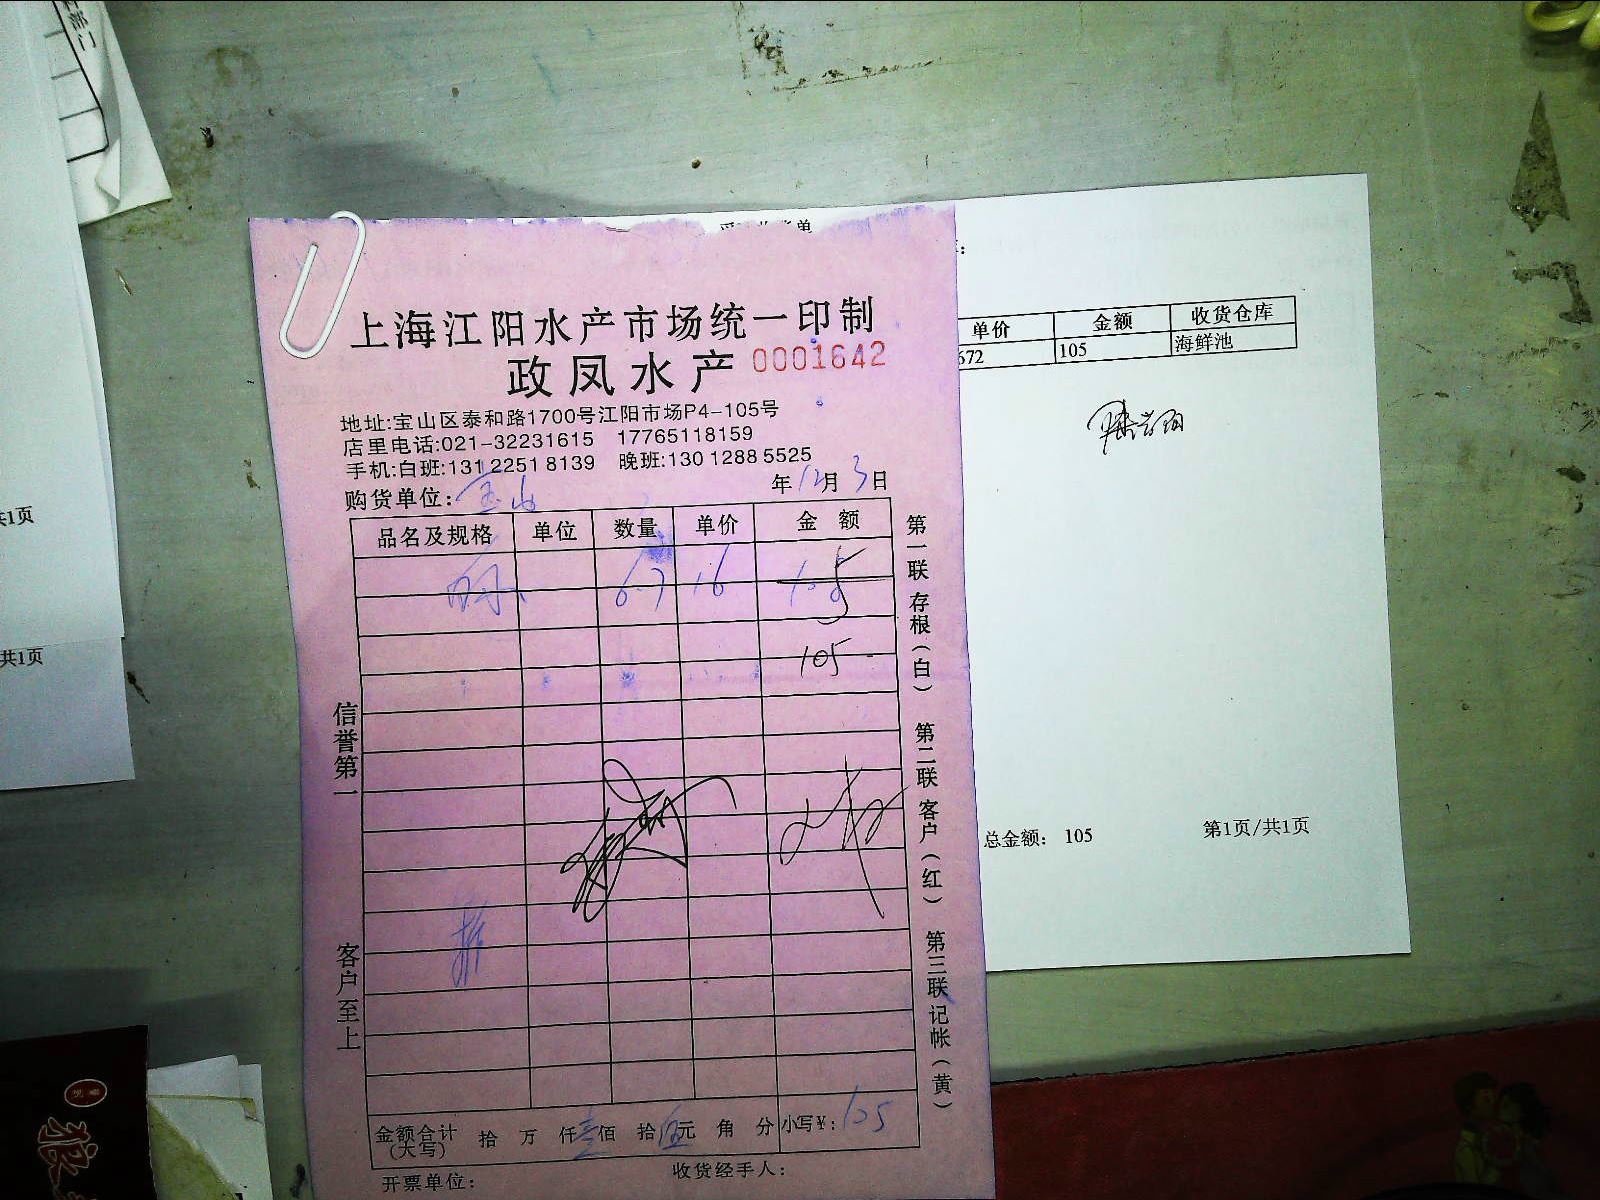 上海江阳水产市场统一印制
政凤水产 0001642
地址:宝山区泰和路1700号江阳市场P4-105号
店里电话:021-32231615 17765118159
手机:白班:131 2251 8139 晚班:130 1288 5525
购货单位: 宝山 年12月3日
品名及规格 单位 数量 单价 金额
6.7 16
105
信誉第一
客户至上
第一联存根(白) 第二联客户(红) 第三联记帐(黄)
金额合计(大写) 拾 万 仟壹佰 拾伍元 角 分 小写¥: 105
开票单位: 收货经手人:
单价 金额 收货仓库
672 105 海鲜池
总金额: 105 第1页/共1页
共1页
共1页